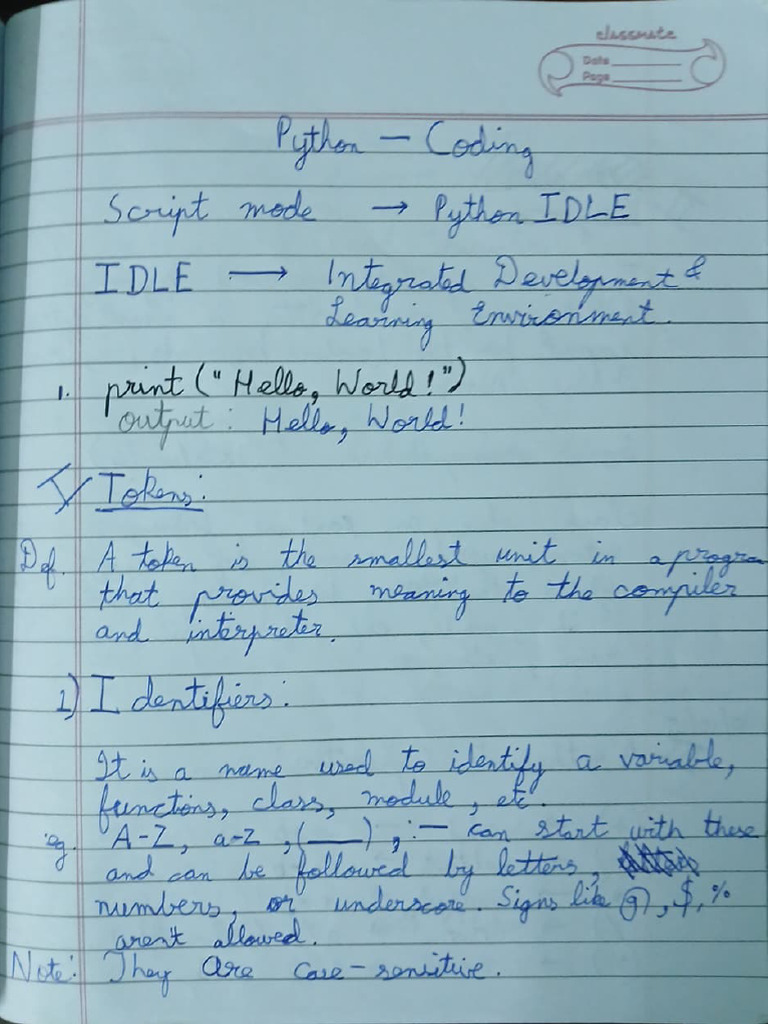 classmate
Date
Page
Python — Coding
Script mode → Python IDLE
IDLE → Integrated Development &
Learning Environment.
1. print("Hello, World!")
output: Hello, World!
I/ Tokens:
Def. A token is the smallest unit in a progra
that provides meaning to the compiler
and interpreter.
1) Identifiers:
It is a name used to identify a variable,
functions, class, module, etc.
eg. A-Z, a-z, (__), :— can start with these
and can be followed by letters,
numbers, or underscore. Signs like @, $, %
aren't allowed.
Note: They are case-sensitive.